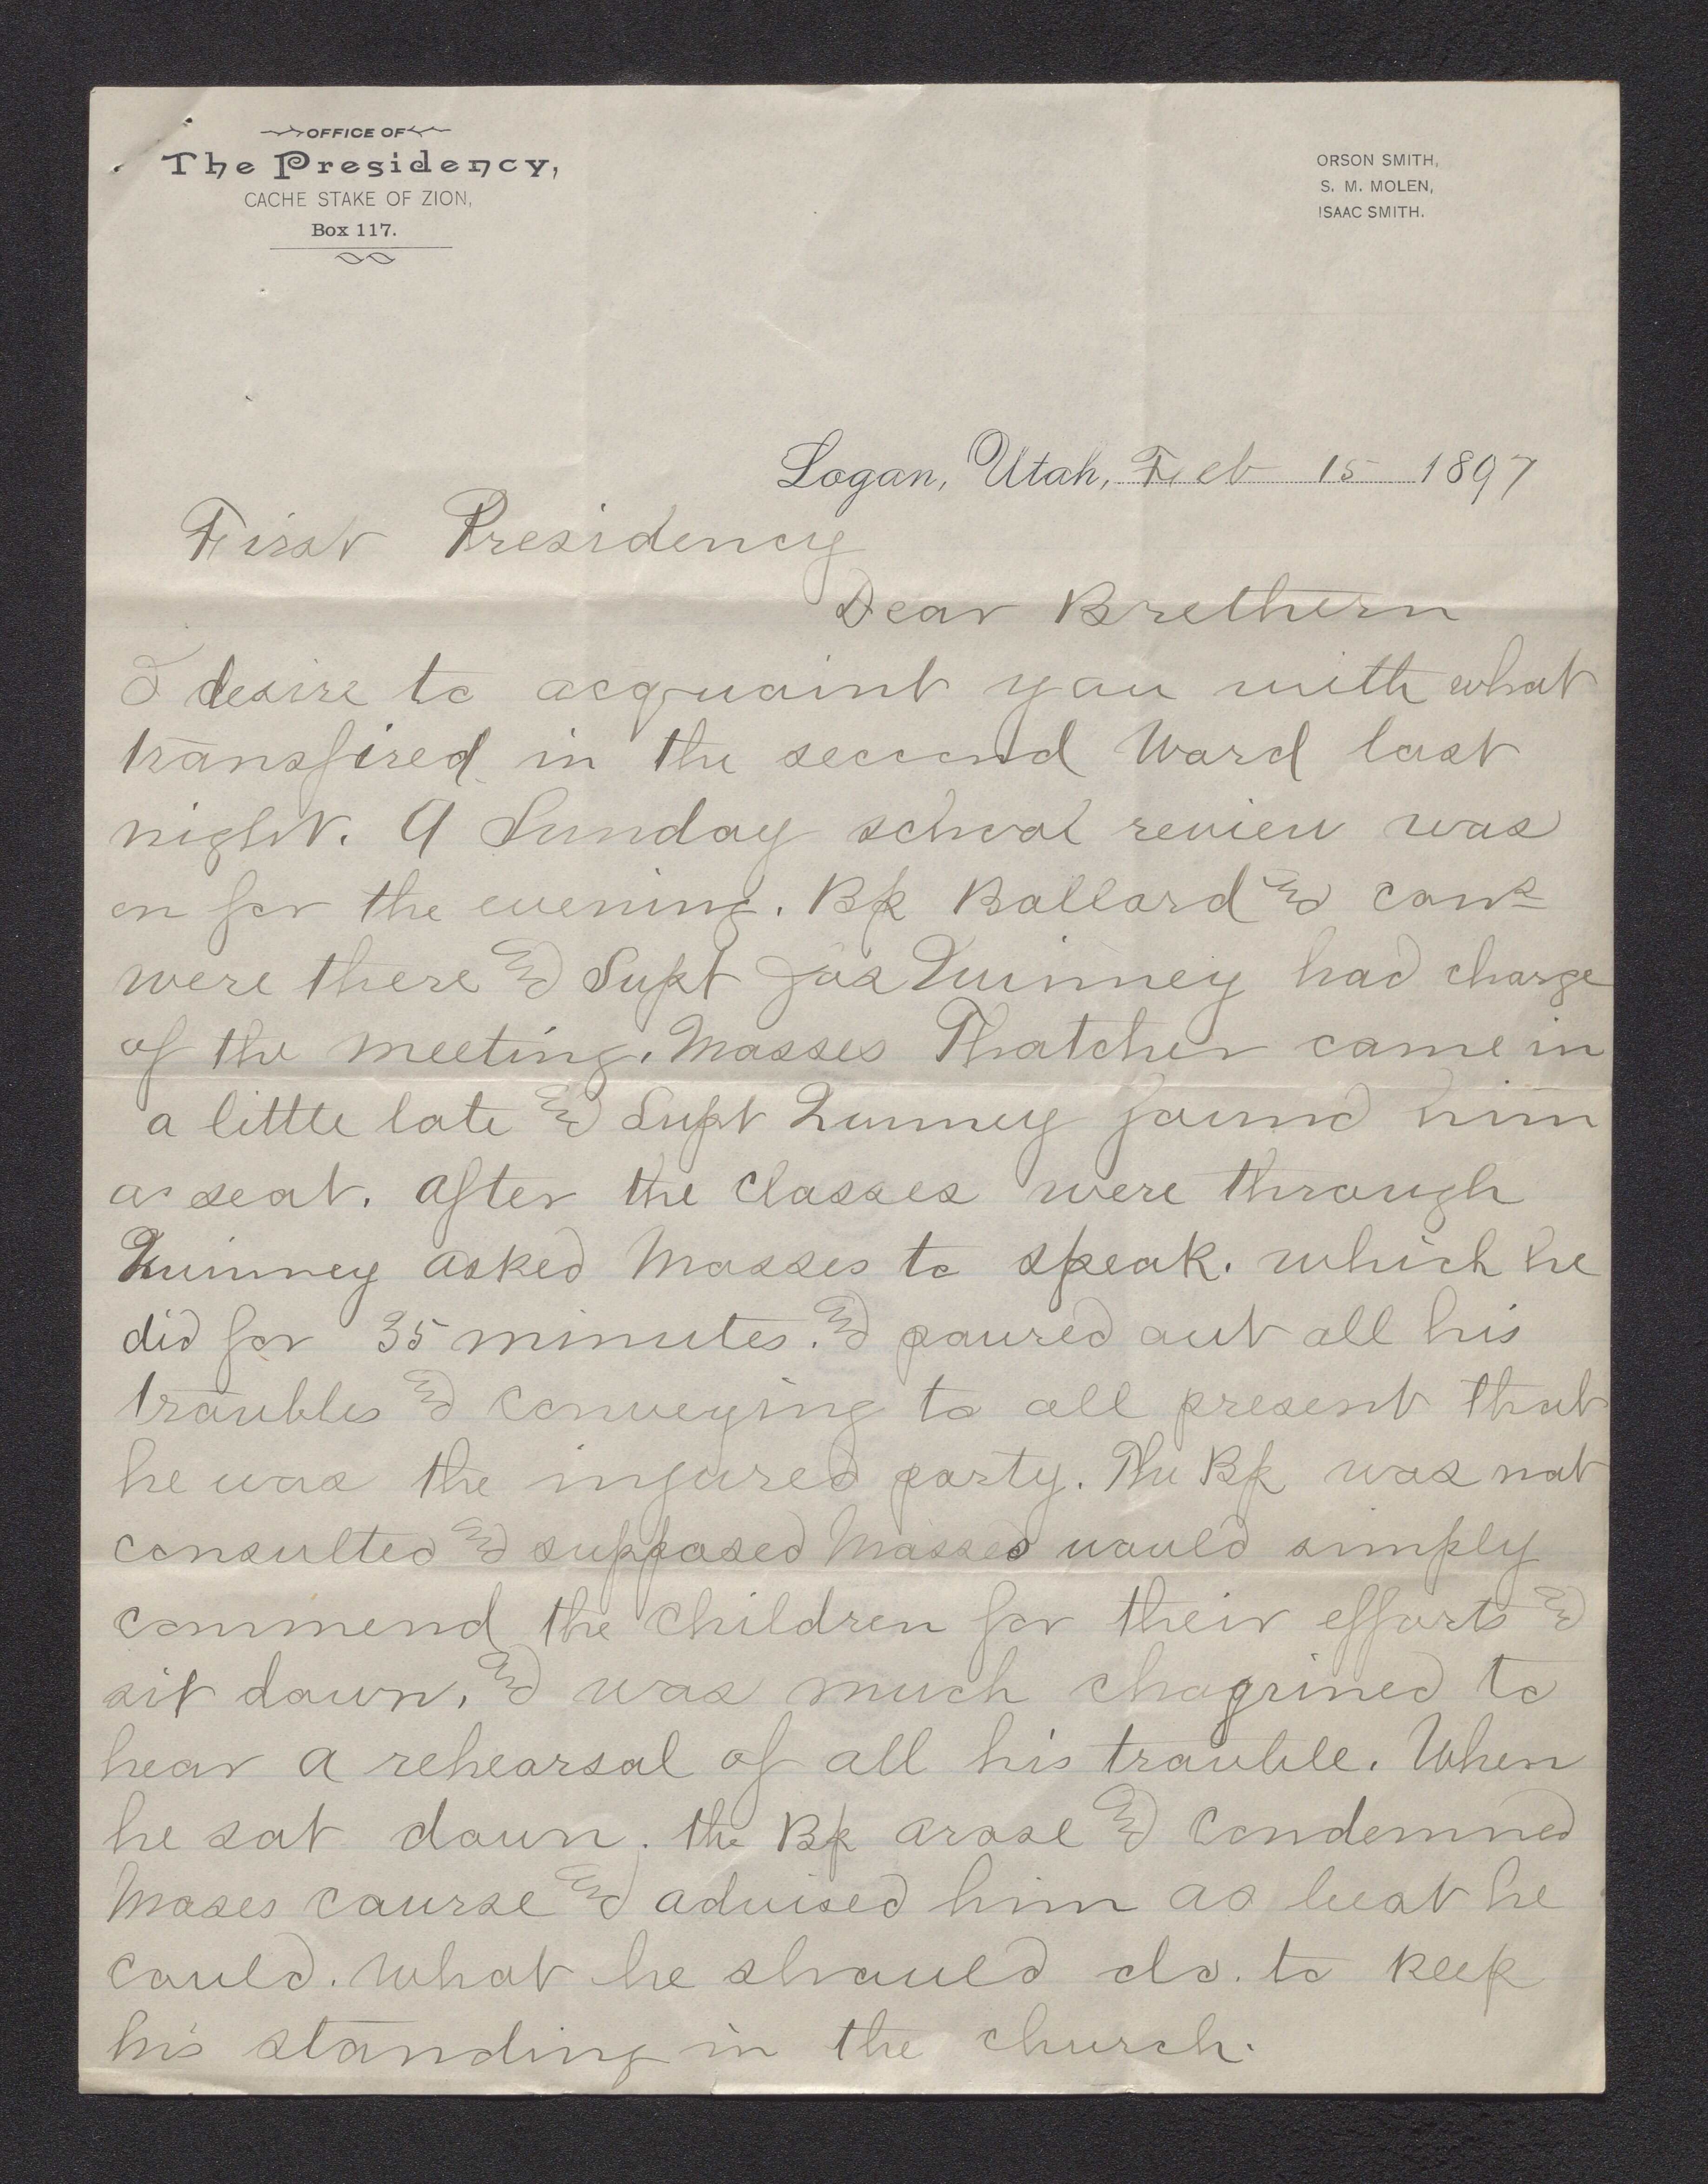 OFFICE OF
The Presidency,
CACHE STAKE OF ZION,
Box 117.
ORSON SMITH,
S. M. MOLEN,
ISAAC SMITH.
Logan, Utah, Feb 15 1897
First Presidency
Dear Brethern
I desire to acquaint you with what
transpired in the second Ward last
night. A Sunday school review was
on for the evening. Bp Ballard and couns
were there and Supt Jos Quinney had charge
of the meeting. Mosses Thatcher came in
a little late and Supt Quinney found him
a seat. After the classes were through
Quinney asked Mosses to speak. which he
did for 35 minutes. and poured out all his
troubles and conveying to all present that
he was the injured party. The Bp was not
consulted and supposed Mosses would simply
commend the children for their efforts and
sit down, and was much chagrined to
hear a rehearsal of all his trouble. When
he sat down. the Bp arose and condemned
Moses course and advised him as best he
could. what he should do. to keep
his standing in the church.